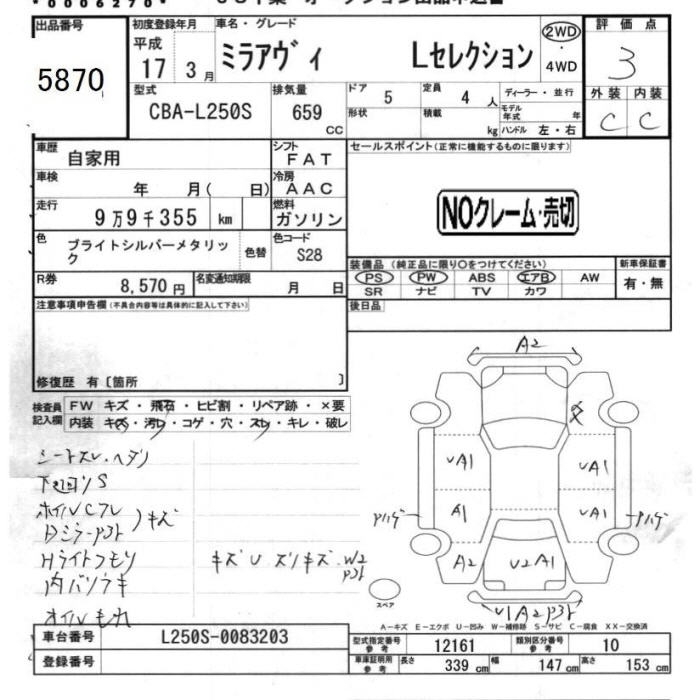 0006270
出品番号
5870
初度登録年月
平成
17 3月
車名・グレード
ミラアヴィ Lセレクション
2WD
・
4WD
評価点
3
外装 内装
C C
型式
CBA-L250S
排気量
659
CC
ドア
5
定員
4 人
形状
積載
kg
ディーラー・並行
モデル年式 年
ハンドル 左・右
車歴
自家用
シフト
FAT
車検
年 月( 日)
冷房
AAC
走行
9万9千355 km
燃料
ガソリン
色
ブライトシルバーメタリック
色替
色コード
S28
R券
8,570 円
名変通知期限
月 日
セールスポイント(正常に機能するものに限ります)
NOクレーム・売切
装備品 (純正品に限り○をつけてください)
PS PW ABS エアB AW
SR ナビ TV カワ
新車保証書
有・無
後日品
注意事項申告欄(不具合内容等は具体的に記入して下さい)
修復歴 有〔箇所 〕
検査員記入欄
FW キズ・飛石・ヒビ割・リペア跡・×要
内装 キズ・汚レ・コゲ・穴・スレ・キレ・破レ
シートスレ・ヘタリ
下廻リS
ホイルCフレ
Dミラーアスト
キズ
Hライトクモリ
内バリキズ
オイルもれ
キズU ズリキズ W2
A2
UA1
UA1
A1
UA1
アハゲ
アハゲ
A2
U2A1
スペア
U1A2
A-キズ E-エクボ U-凹み W-補修跡 S-サビ C-腐食 XX-交換済
車台番号
L250S-0083203
登録番号
型式指定番号 参考
12161
類別区分番号 参考
10
車庫証明用 参考
長さ 339 cm
幅 147 cm
高さ 153 cm